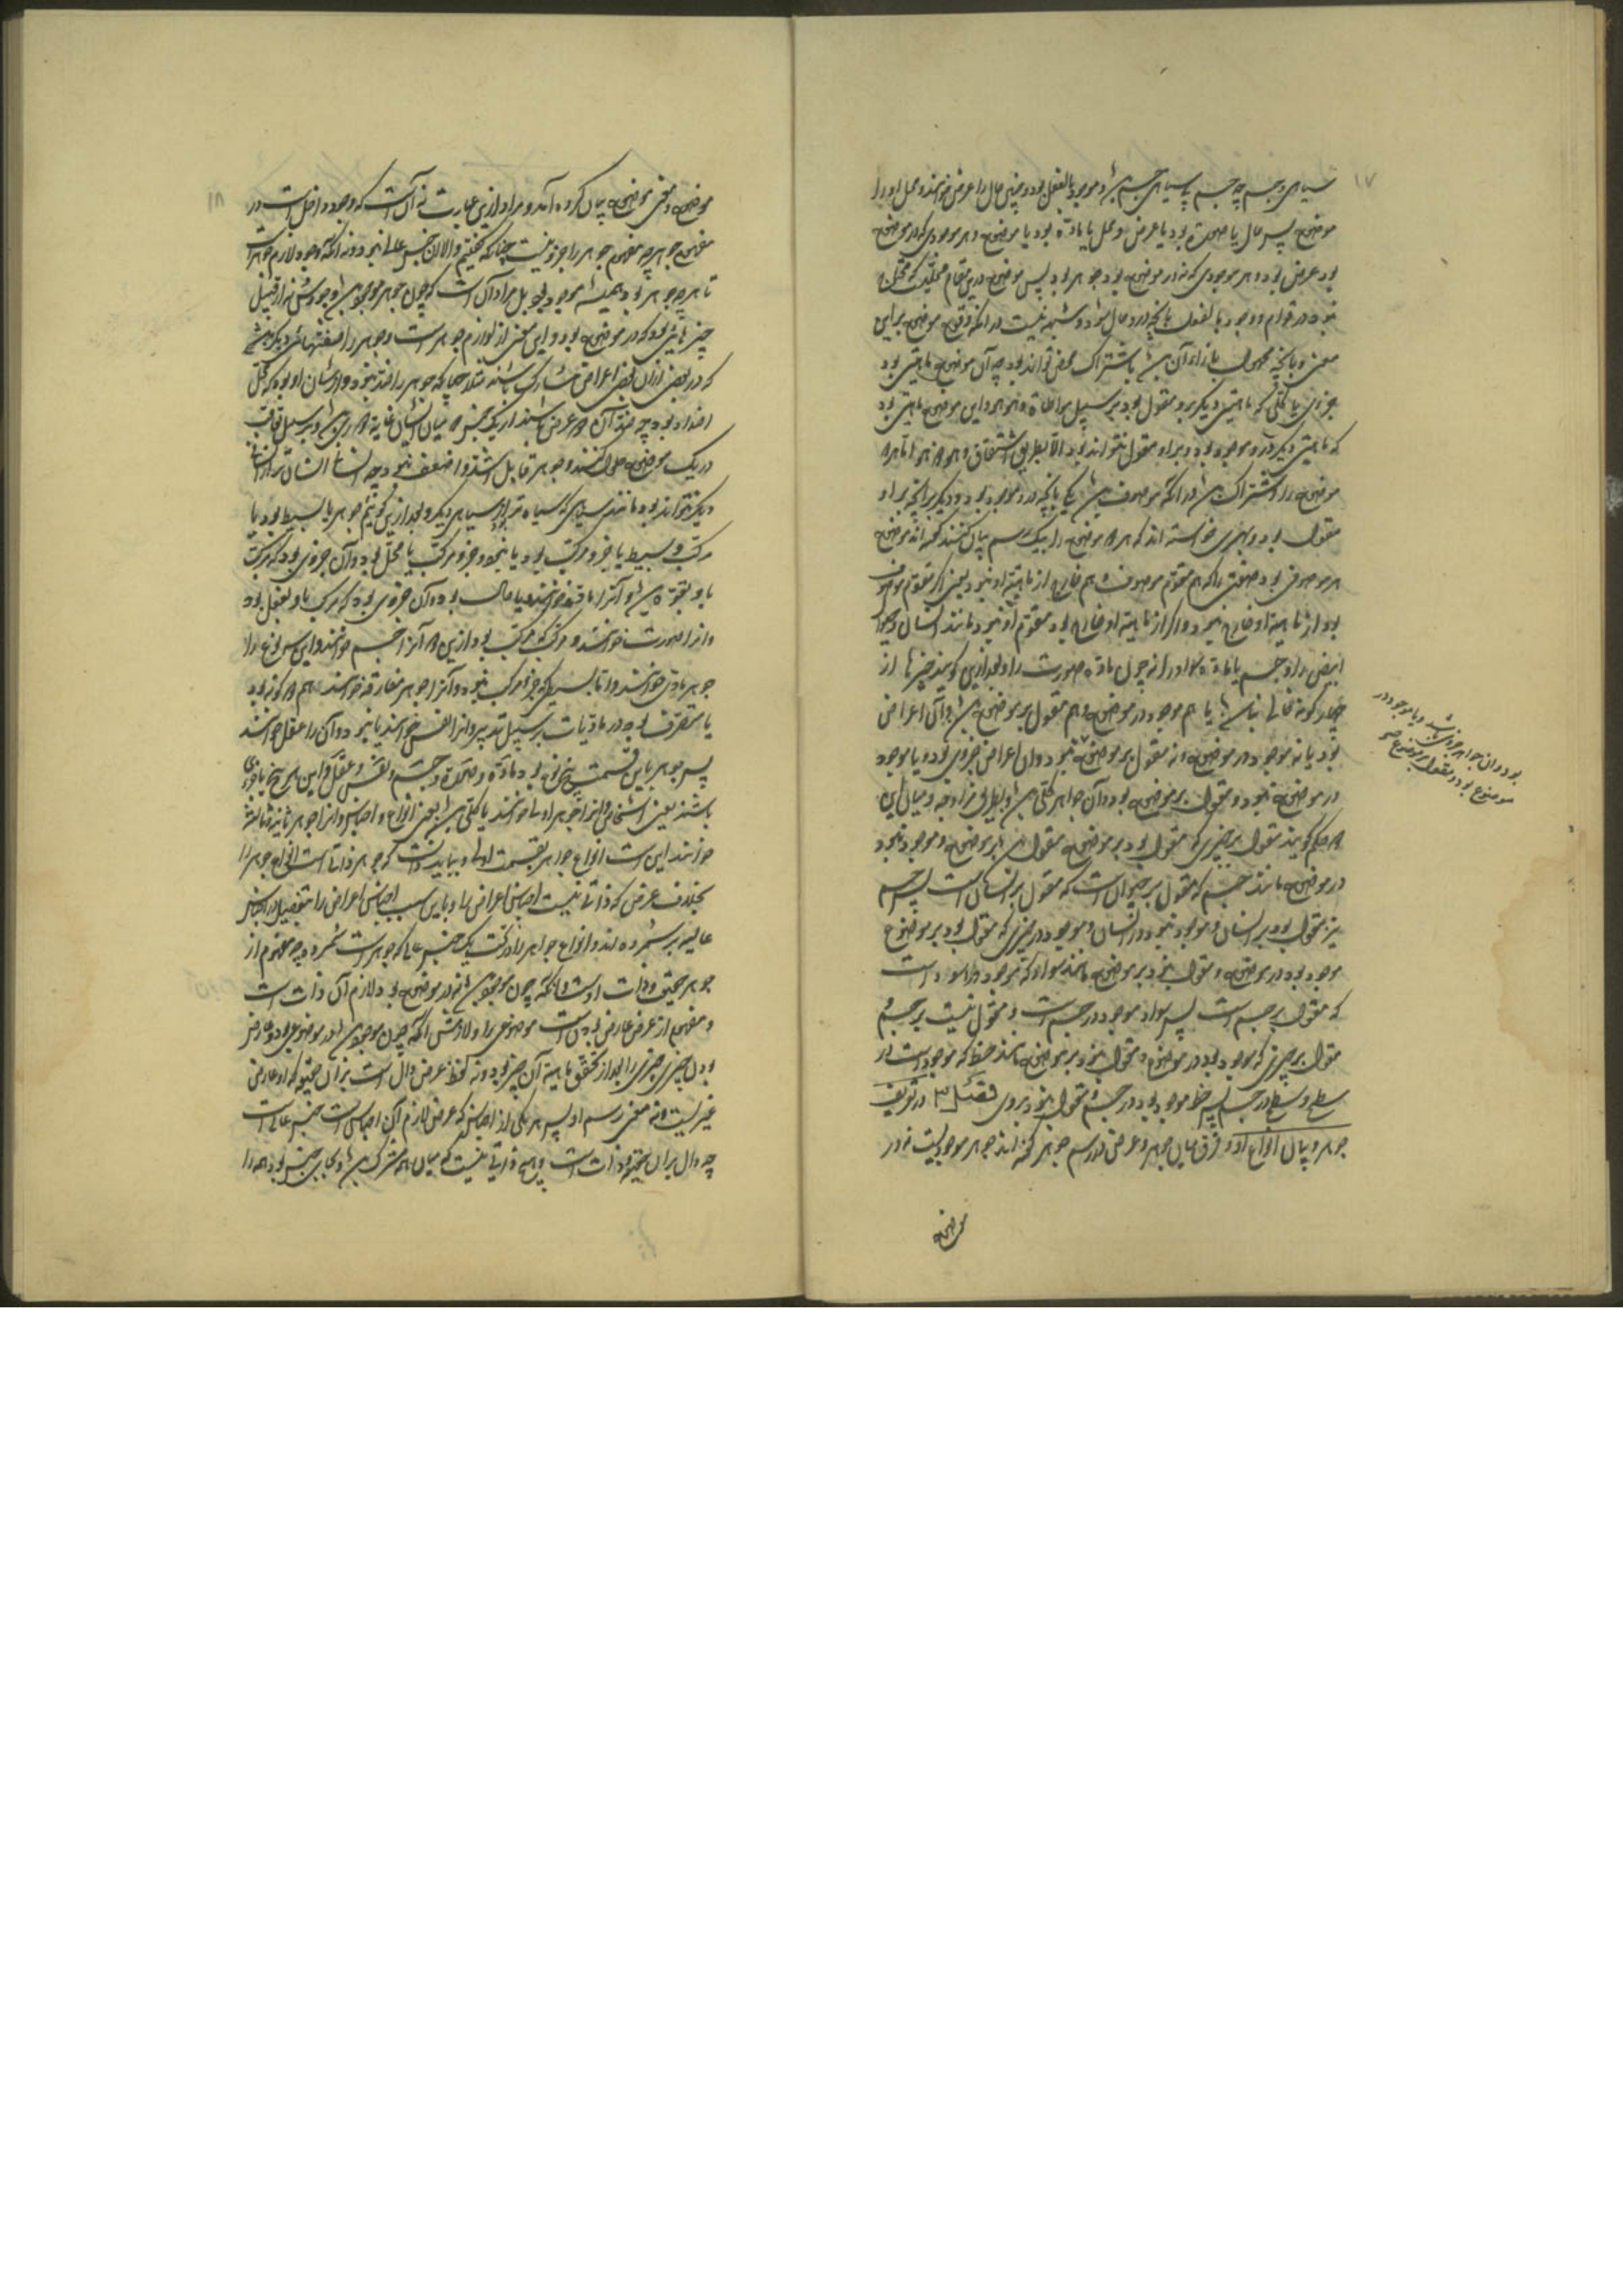 سیاهی و جسم چه جسم بی سیاهی جسم باشد و موجود بالفعل بود و چنین حال را عرض خوانند و محل او را
موضوع پس حال یا صورت بود یا عرض و محل یا ماده بود یا موضوع و هر موجودی که در موضوع
بود عرض بود و هر موجودی که نه در موضوع بود جوهر بود پس موضوع درین مقام محلیست که محتاج
نبود در قوام و وجود بالفعل بآنچه درو حال شود و شبهه نیست در آنکه وقوع موضوع برین
معنی و بآنچه محمول بازاء آن باشد باشتراک محض تواند بود چه آن موضوع ماهیتی بود
جزوی یا کلی که ماهیتی دیگر برو مقول بود بر سبیل مواطاة و هو هو و این موضوع ماهیتی بود
که ماهیتی دیگر درو موجود بود و برو مقول نتواند بود الا بطریق اشتقاق و هو ذو هو اما هر دو
موضوع را اشتراک باشد در آنکه موصوف باشند یکی بآنچه درو موجود بود و دیگر بآنچه برو
مقول بود و بهری خواسته‌اند که هر دو موضوع را بیک رسم بیان کنند گفته‌اند موضوع
هر موصوفی بود صفتی را که هم مقوم موصوف و هم خارج از ماهیة او نبود یعنی اگر مقوم موصوف
بود از ماهیة او خارج نبود و اگر از ماهیة او خارج بود مقوم او نبود مانند انسان و حیوان
ابیض را و جسم یا ماده سواد را نه چون ماده صورت را و بعد ازین گویند چیزها از
چهار گونه خالی نباشد یا هم موجود در موضوع و هم مقول بر موضوع باشد و آن اعراض کلی
بود یا نه موجود در موضوع و نه مقول بر موضوع
بود و آن جواهر جزوی باشد و یا موجود در
موضوع بود و نه مقول بر موضوع صح
نبود و آن اعراض جزوی بود و یا موجود
در موضوع نبود و مقول بر موضوع بود و آن جواهر کلی باشد و بطریق مزاوجه و میان این
هر دو حکم گویند مقول بر چیزی که مقول بود بر موضوع مقول باشد بر موضوع و موجود نبود
در موضوع مانند جسم که مقول بر حیوان است که مقول بر انسان است پس جسم
نیز مقول بود بر انسان و موجود نبود در انسان و موجود در چیزی که مقول بود بر موضوع
موجود بود در موضوع و مقول نبود بر موضوع مانند سواد که موجود در اسود است
که مقول بر جسم است پس سواد موجود در جسم است و مقول نیست بر جسم و
مقول بر چیزی که موجود بود در موضوع و مقول نبود بر موضوع مانند خط که موجود است در
سطح و سطح در جسم پس خط موجود بود در جسم و مقول نبود بروی فصل ۳ در تعریف
جوهر و بیان انواع او و فرق میان جوهر و عرض در رسم جوهر گفته‌اند جوهر موجودیست نه در
موضوع
موضوع و معنی موضوع بیان کرده آمد و مراد ازین عبارت نه آن است که وجود داخل است در
مفهوم جوهر چه مفهوم جوهر را جزو نیست چنانکه گفتیم و الا آن جنس عالی نبود و نه آنکه وجود لازم جوهر است
تا هر چه جوهر بود همیشه موجود بود بل مراد آن است که چون جوهر موجود باشد وجودش نه از قبیل
چیزهایی بود که در موضوع بود و این معنی از لوازم جوهر است و جوهر را صفتهای دیگر هست
که در بعضی ازان بعضی اعراض مشارک باشند مثلا چنانکه جوهر را ضد نبود و از شان او بود که محل
اضداد بود چه ضد آن دو عرض باشند از یک جنس که میان ایشان غایة دوری باشد و بر سبیل تعاقب
در یک موضوع حلول کنند و جوهر قابل اشد و اضعف نبود چه انسانی انسان‌تر از انسانی
دیگر نتواند بود مانند سیاهی که سیاه‌تر از سیاهی دیگر و بعد ازین گوئیم جوهر یا بسیط بود یا
مرکب و بسیط یا جزو مرکب بود یا نبود و جزو مرکب یا محل بود و آن جزوی بود که مرکب
باو بقوة باشد و آنرا ماده خوانند و یا حال بود و آن جزوی بود که مرکب باو بفعل بود
و آنرا صورت خوانند و مرکب که مرکب بود ازین دو آنرا جسم خوانند و این سه نوع را
جوهر مادی خوانند و اما بسیطی که جزو مرکب نبود و آنرا جوهر مفارق خوانند هم دو گونه بود
یا متصرف بود در مادیات بر سبیل تدبیر و آنرا نفس خوانند یا نبود و آن را عقل خوانند
پس جوهر باین قسمت پنج نوع بود ماده و صورة و جسم و نفس و عقل و این هر پنج یا جزوی
باشند یعنی اشخاص و آنرا جواهر اولی خوانند یا کلی باشند یعنی انواع و اجناس و آنرا جوهر ثانیه و ثالثه
خوانند این است انواع جواهر بقسمت اولی و بباید دانست که جوهر ذاتی است انواع جوهر را
بخلاف عرض که ذاتی نیست اجناس اعراض را و باین سبب اجناس اعراض را بتفصیل در اجناس
عالیه بر شمرده‌اند و انواع جواهر را در تحت یک جنس عالی که جوهر است شمرده چه مفهوم از
جوهر حقیقت و ذات اوست و آنکه چون موجود باشد نه در موضوع بود لازم آن ذات است
و مفهوم از عرض عارض بودن است موضوعی را و لازمش آنکه چون موجود باشد در موضوع بود و عارض
بودن چیزی چیزی را بعد از تحقق ماهیة آن چیز بود و نه لفظ عرض دال است بر آن حقیقت که او عارض
غیر است و نه معنی رسم او پس هر یکی از اجناس که عرض لازم آن اجناس است جنس عالی است
چه دال بر آن حقیقت و ذات است و هیچ ذاتی نیست که میان همه مشترک باشد و بجای جنس بود همه را